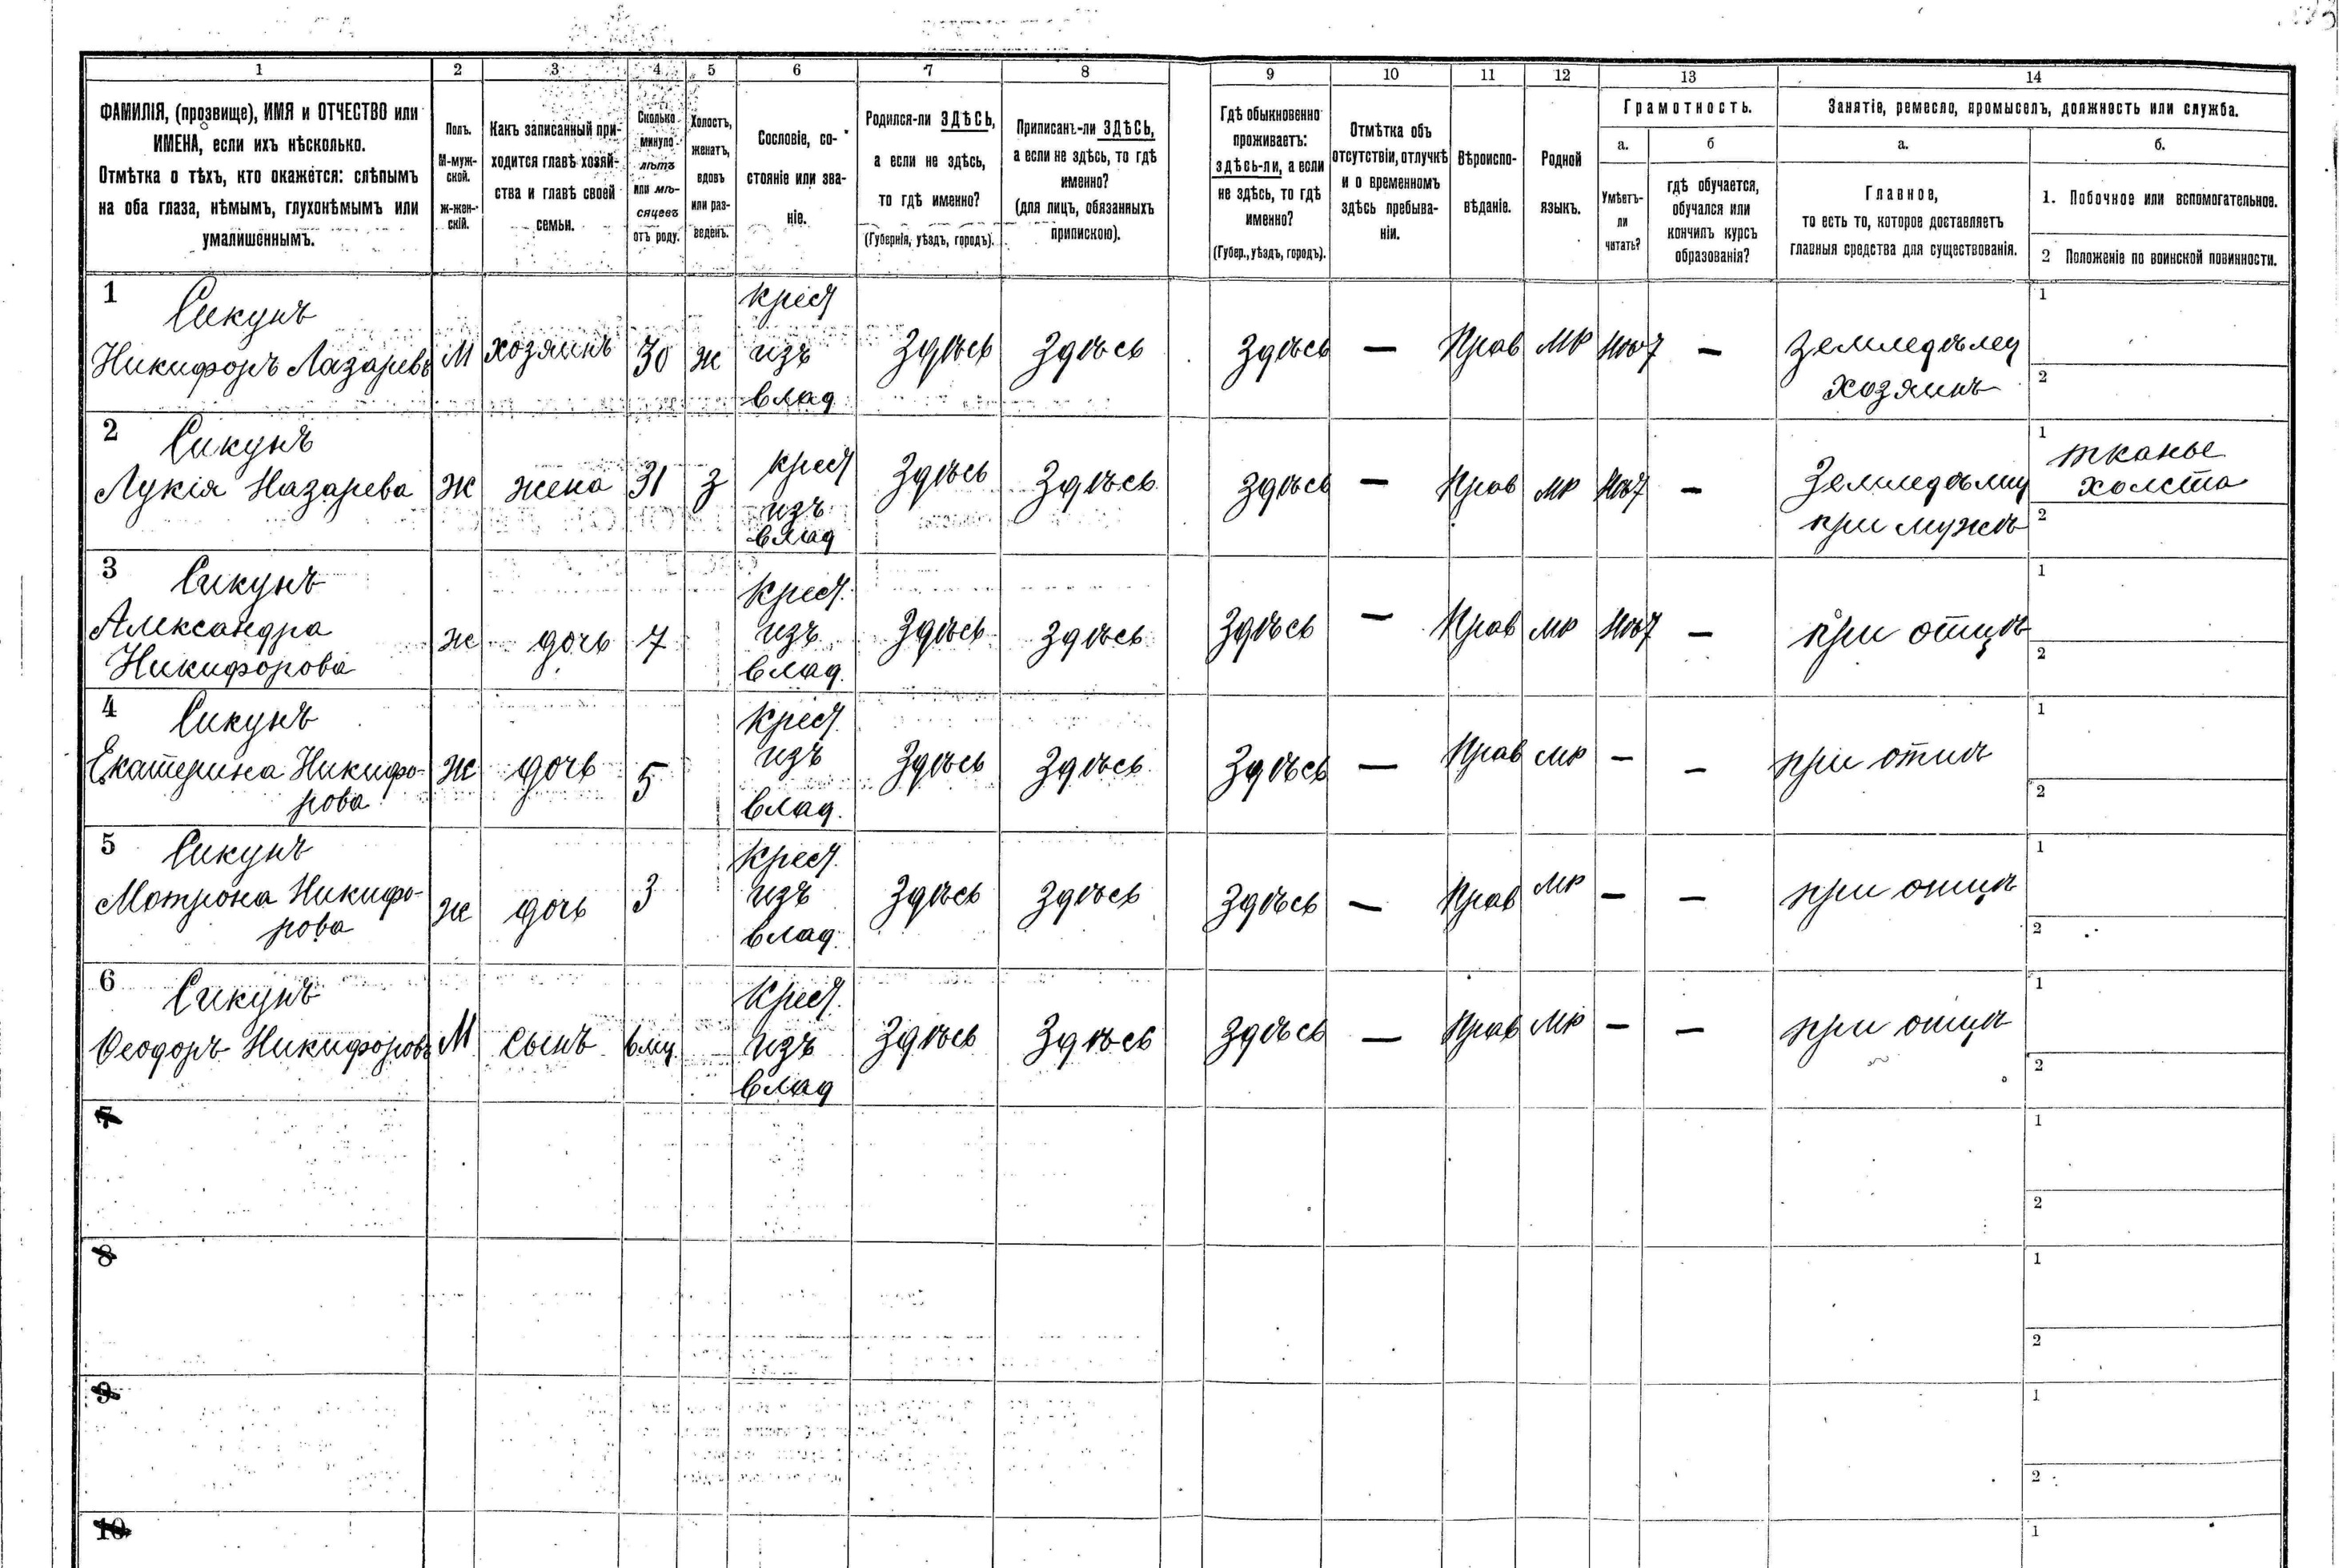 1 2 3 4 5 6 7 8 9 10 11 12 13 14
ФАМИЛІЯ, (прозвище), ИМЯ и ОТЧЕСТВО или
ИМЕНА, если ихъ нѣсколько.
Отмѣтка о тѣхъ, кто окажется: слѣпымъ
на оба глаза, нѣмымъ, глухонѣмымъ или
умалишеннымъ.
Полъ.
М-муж-
ской.
ж-жен-
скій.
Какъ записанный при-
ходится главѣ хозяй-
ства и главѣ своей
семьи.
Сколько
минуло
лѣтъ
или мѣ-
сяцевъ
отъ роду.
Холостъ,
женатъ,
вдовъ
или раз-
веденъ.
Сословіе, со-
стояніе или зва-
ніе.
Родился-ли ЗДѢСЬ,
а если не здѣсь,
то гдѣ именно?
(Губернія, уѣздъ, городъ).
Приписанъ-ли ЗДѢСЬ,
а если не здѣсь, то гдѣ
именно?
(для лицъ, обязанныхъ
припискою).
Гдѣ обыкновенно
проживаетъ:
здѣсь-ли, а если
не здѣсь, то гдѣ
именно?
(Губер., уѣздъ, городъ).
Отмѣтка объ
отсутствіи, отлучкѣ
и о временномъ
здѣсь пребыва-
ніи.
Вѣроиспо-
вѣданіе.
Родной
языкъ.
Грамотность.
а.
Умѣетъ-
ли
читать?
б
гдѣ обучается,
обучался или
кончилъ курсъ
образованія?
Занятіе, ремесло, промыселъ, должность или служба.
а.
Главное,
то есть то, которое доставляетъ
главныя средства для существованія.
б.
1. Побочное или вспомогательное.
2 Положеніе по воинской повинности.
1 Сикунъ
Никифоръ Лазаревъ М хозяинъ 30 ж
крест
изъ
влад
Здѣсь Здѣсь Здѣсь — Прав МР нѣт —
земледѣлец
хозяинъ
1
2
2 Сикунъ
Лукія Назарева ж жена 31 з
крест
изъ
влад
Здѣсь Здѣсь Здѣсь — Прав МР нѣт —
Земледѣлиц
при мужѣ
1 тканье
холста
2
3 Сикунъ
Александра
Никифорова
ж дочь 7
крест.
изъ
влад.
Здѣсь Здѣсь Здѣсь — Прав МР нѣт —
при отцѣ
1
2
4 Сикунъ
Екатерина Никифо-
рова
ж дочь 5
крест.
изъ
влад.
Здѣсь Здѣсь Здѣсь — Прав МР — —
при отцѣ
1
2
5 Сикунъ
Матрона Никифо-
рова
ж дочь 3
крест.
изъ
влад.
Здѣсь Здѣсь Здѣсь — Прав МР — —
при отцѣ
1
2
6 Сикунъ
Ѳеодоръ Никифоровъ М сынъ
крест.
изъ
влад
Здѣсь Здѣсь Здѣсь — Прав МР — —
при отцѣ
1
2
7
1
2
8
1
2
9
1
2
10
1